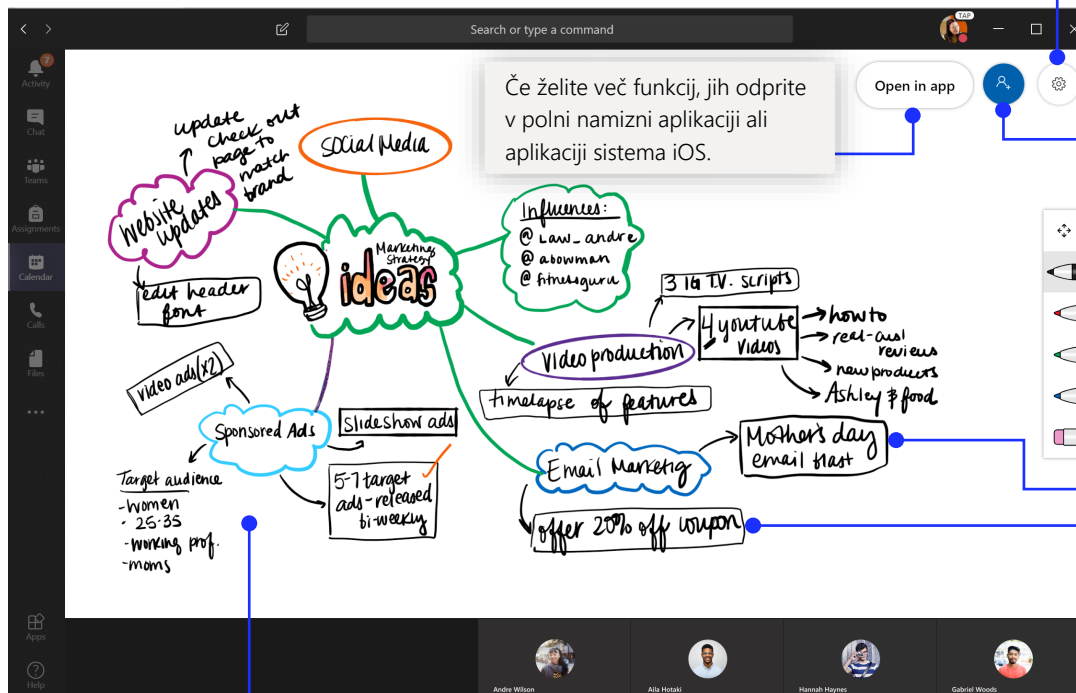 Search or type a command
TAP
7
Activity
Chat
Teams
Assignments
Calendar
Calls
Files
Apps
Help
Če želite več funkcij, jih odprite
v polni namizni aplikaciji ali
aplikaciji sistema iOS.
Open in app
update
check out
page to
match
brand
Social Media
Website
updates
edit header
font
Marketing
Strategy
ideas
Influences:
@ Law_andre
@ abowman
@ fitnessguru
3 IG T.V. scripts
4 youtube
videos
how to
real-cust
reviews
new products
Ashley & food
Video production
timelapse of features
video ads (x2)
Sponsored Ads
Slideshow ads
Target audience
-women
- 25-35
-working prof.
-moms
5-7 target
ads-released
bi-weekly
Email Marketig
Mother's day
email blast
offer 20% off coupon
Andre Wilson
Aila Hotaki
Hannah Haynes
Gabriel Woods